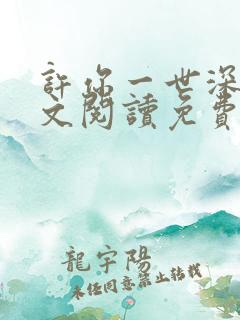 許你一世深
文閱讀免費
龍宇陽
未任同意禁止轉載